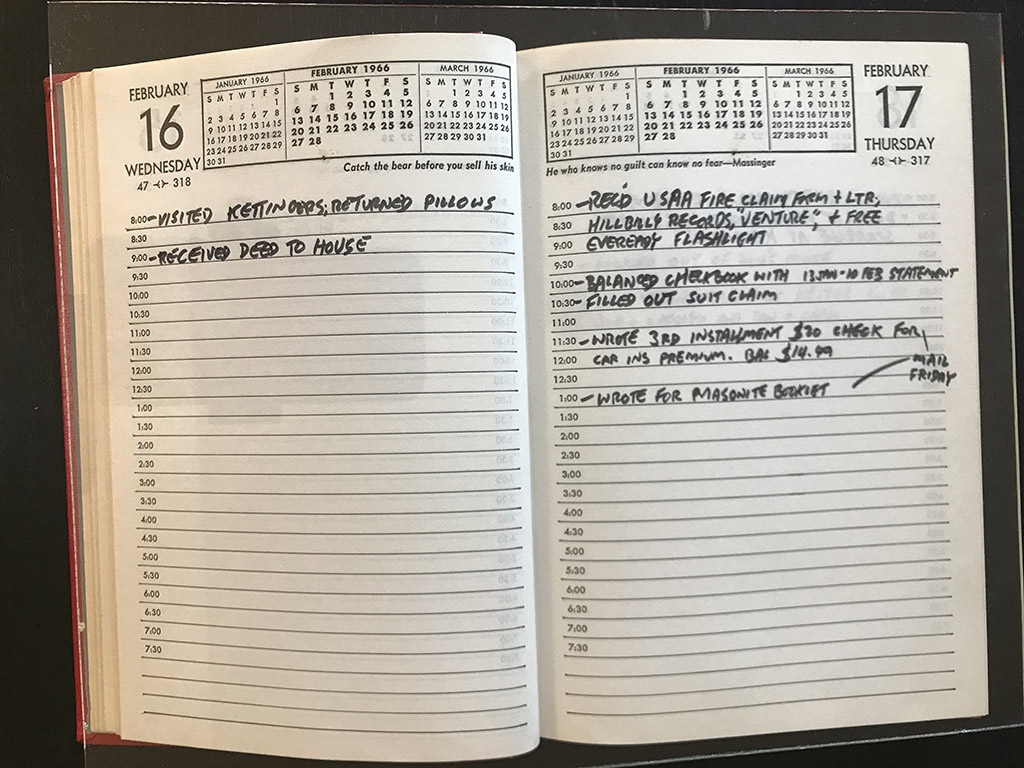 FEBRUARY
16
WEDNESDAY
47 318
JANUARY 1966
S M T W T F S
1
2 3 4 5 6 7 8
9 10 11 12 13 14 15
16 17 18 19 20 21 22
23 24 25 26 27 28 29
30 31
FEBRUARY 1966
S M T W T F S
1 2 3 4 5
6 7 8 9 10 11 12
13 14 15 16 17 18 19
20 21 22 23 24 25 26
27 28
MARCH 1966
S M T W T F S
1 2 3 4 5
6 7 8 9 10 11 12
13 14 15 16 17 18 19
20 21 22 23 24 25 26
27 28 29 30 31
Catch the bear before you sell his skin
8:00 - VISITED KETTINGERS; RETURNED PILLOWS
8:30
9:00 - RECEIVED DEED TO HOUSE
9:30
10:00
10:30
11:00
11:30
12:00
12:30
1:00
1:30
2:00
2:30
3:00
3:30
4:00
4:30
5:00
5:30
6:00
6:30
7:00
7:30
JANUARY 1966
S M T W T F S
1
2 3 4 5 6 7 8
9 10 11 12 13 14 15
16 17 18 19 20 21 22
23 24 25 26 27 28 29
30 31
FEBRUARY 1966
S M T W T F S
1 2 3 4 5
6 7 8 9 10 11 12
13 14 15 16 17 18 19
20 21 22 23 24 25 26
27 28
MARCH 1966
S M T W T F S
1 2 3 4 5
6 7 8 9 10 11 12
13 14 15 16 17 18 19
20 21 22 23 24 25 26
27 28 29 30 31
FEBRUARY
17
THURSDAY
48 317
He who knows no guilt can know no fear—Massinger
8:00 - REC'D USAA FIRE CLAIM FORM + LTR,
8:30 HILLBILLY RECORDS, "VENTURE", + FREE
9:00 EVEREADY FLASHLIGHT
9:30
10:00 - BALANCED CHECKBOOK WITH 13 JAN-10 FEB STATEMENT
10:30 - FILLED OUT SUIT CLAIM
11:00
11:30 - WROTE 3RD INSTALLMENT $20 CHECK FOR
12:00 CAR INS PREMIUM. BAL $14.49
MAIL
12:30 FRIDAY
1:00 - WROTE FOR MASONITE BOOKLET
1:30
2:00
2:30
3:00
3:30
4:00
4:30
5:00
5:30
6:00
6:30
7:00
7:30